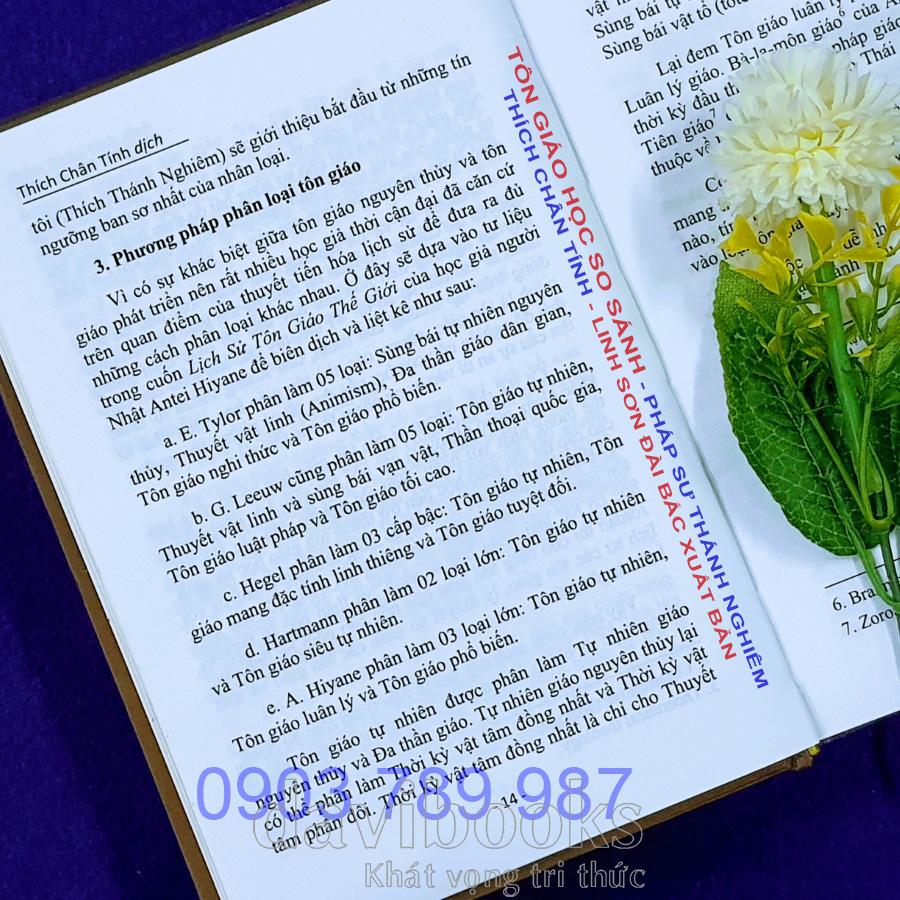 Thích Chân Tính dịch
tôi (Thích Thánh Nghiêm) sẽ giới thiệu bắt đầu từ những tín
ngưỡng ban sơ nhất của nhân loại.
3. Phương pháp phân loại tôn giáo
Vì có sự khác biệt giữa tôn giáo nguyên thủy và tôn
giáo phát triển nên rất nhiều học giả thời cận đại đã căn cứ
trên quan điểm của thuyết tiến hóa lịch sử để đưa ra đủ
những cách phân loại khác nhau. Ở đây sẽ dựa vào tư liệu
trong cuốn Lịch Sử Tôn Giáo Thế Giới của học giả người
Nhật Antei Hiyane để biên dịch và liệt kê như sau:
a. E. Tylor phân làm 05 loại: Sùng bái tự nhiên nguyên
thủy, Thuyết vật linh (Animism), Đa thần giáo dân gian,
Tôn giáo nghi thức và Tôn giáo phổ biến.
b. G. Leeuw cũng phân làm 05 loại: Tôn giáo tự nhiên,
Thuyết vật linh và sùng bái vạn vật, Thần thoại quốc gia,
Tôn giáo luật pháp và Tôn giáo tối cao.
c. Hegel phân làm 03 cấp bậc: Tôn giáo tự nhiên, Tôn
giáo mang đặc tính linh thiêng và Tôn giáo tuyệt đối.
d. Hartmann phân làm 02 loại lớn: Tôn giáo tự nhiên
và Tôn giáo siêu tự nhiên.
e. A. Hiyane phân làm 03 loại lớn: Tôn giáo tự nhiên,
Tôn giáo luân lý và Tôn giáo phổ biến.
Tôn giáo tự nhiên được phân làm Tự nhiên giáo
nguyên thủy và Đa thần giáo. Tự nhiên giáo nguyên thủy lại
có thể phân làm Thời kỳ vật tâm đồng nhất và Thời kỳ vật
tâm phân đôi. Thời kỳ vật tâm đồng nhất là chỉ cho Thuyết
- 14 -
TÔN GIÁO HỌC SO SÁNH - PHÁP SƯ THÁNH NGHIÊM
THÍCH CHÂN TÍNH - LINH SƠN ĐÀI BẮC XUẤT BẢN
Sùng bái tự
Sùng bái vật tổ
Lại đem Tôn giáo luân lý
Luân lý giáo. Bà-la-môn giáo của
thời kỳ đầu
pháp giáo
Thái
Tiên giáo
thuộc về
mang
nào,
vào loại
6.
7.
0903 789 987
davibooks
Khát vọng tri thức